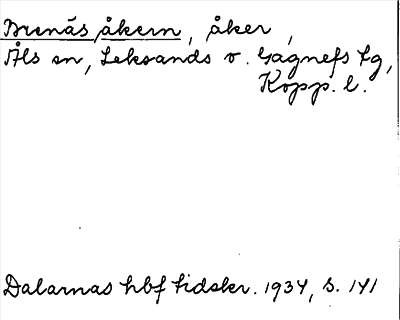 Brenäs åkern, åker,
Åls sn, Leksands o. Gagnefs tg,
Kopp. l.
Dalarnas hbf tidskr. 1934, s. 141